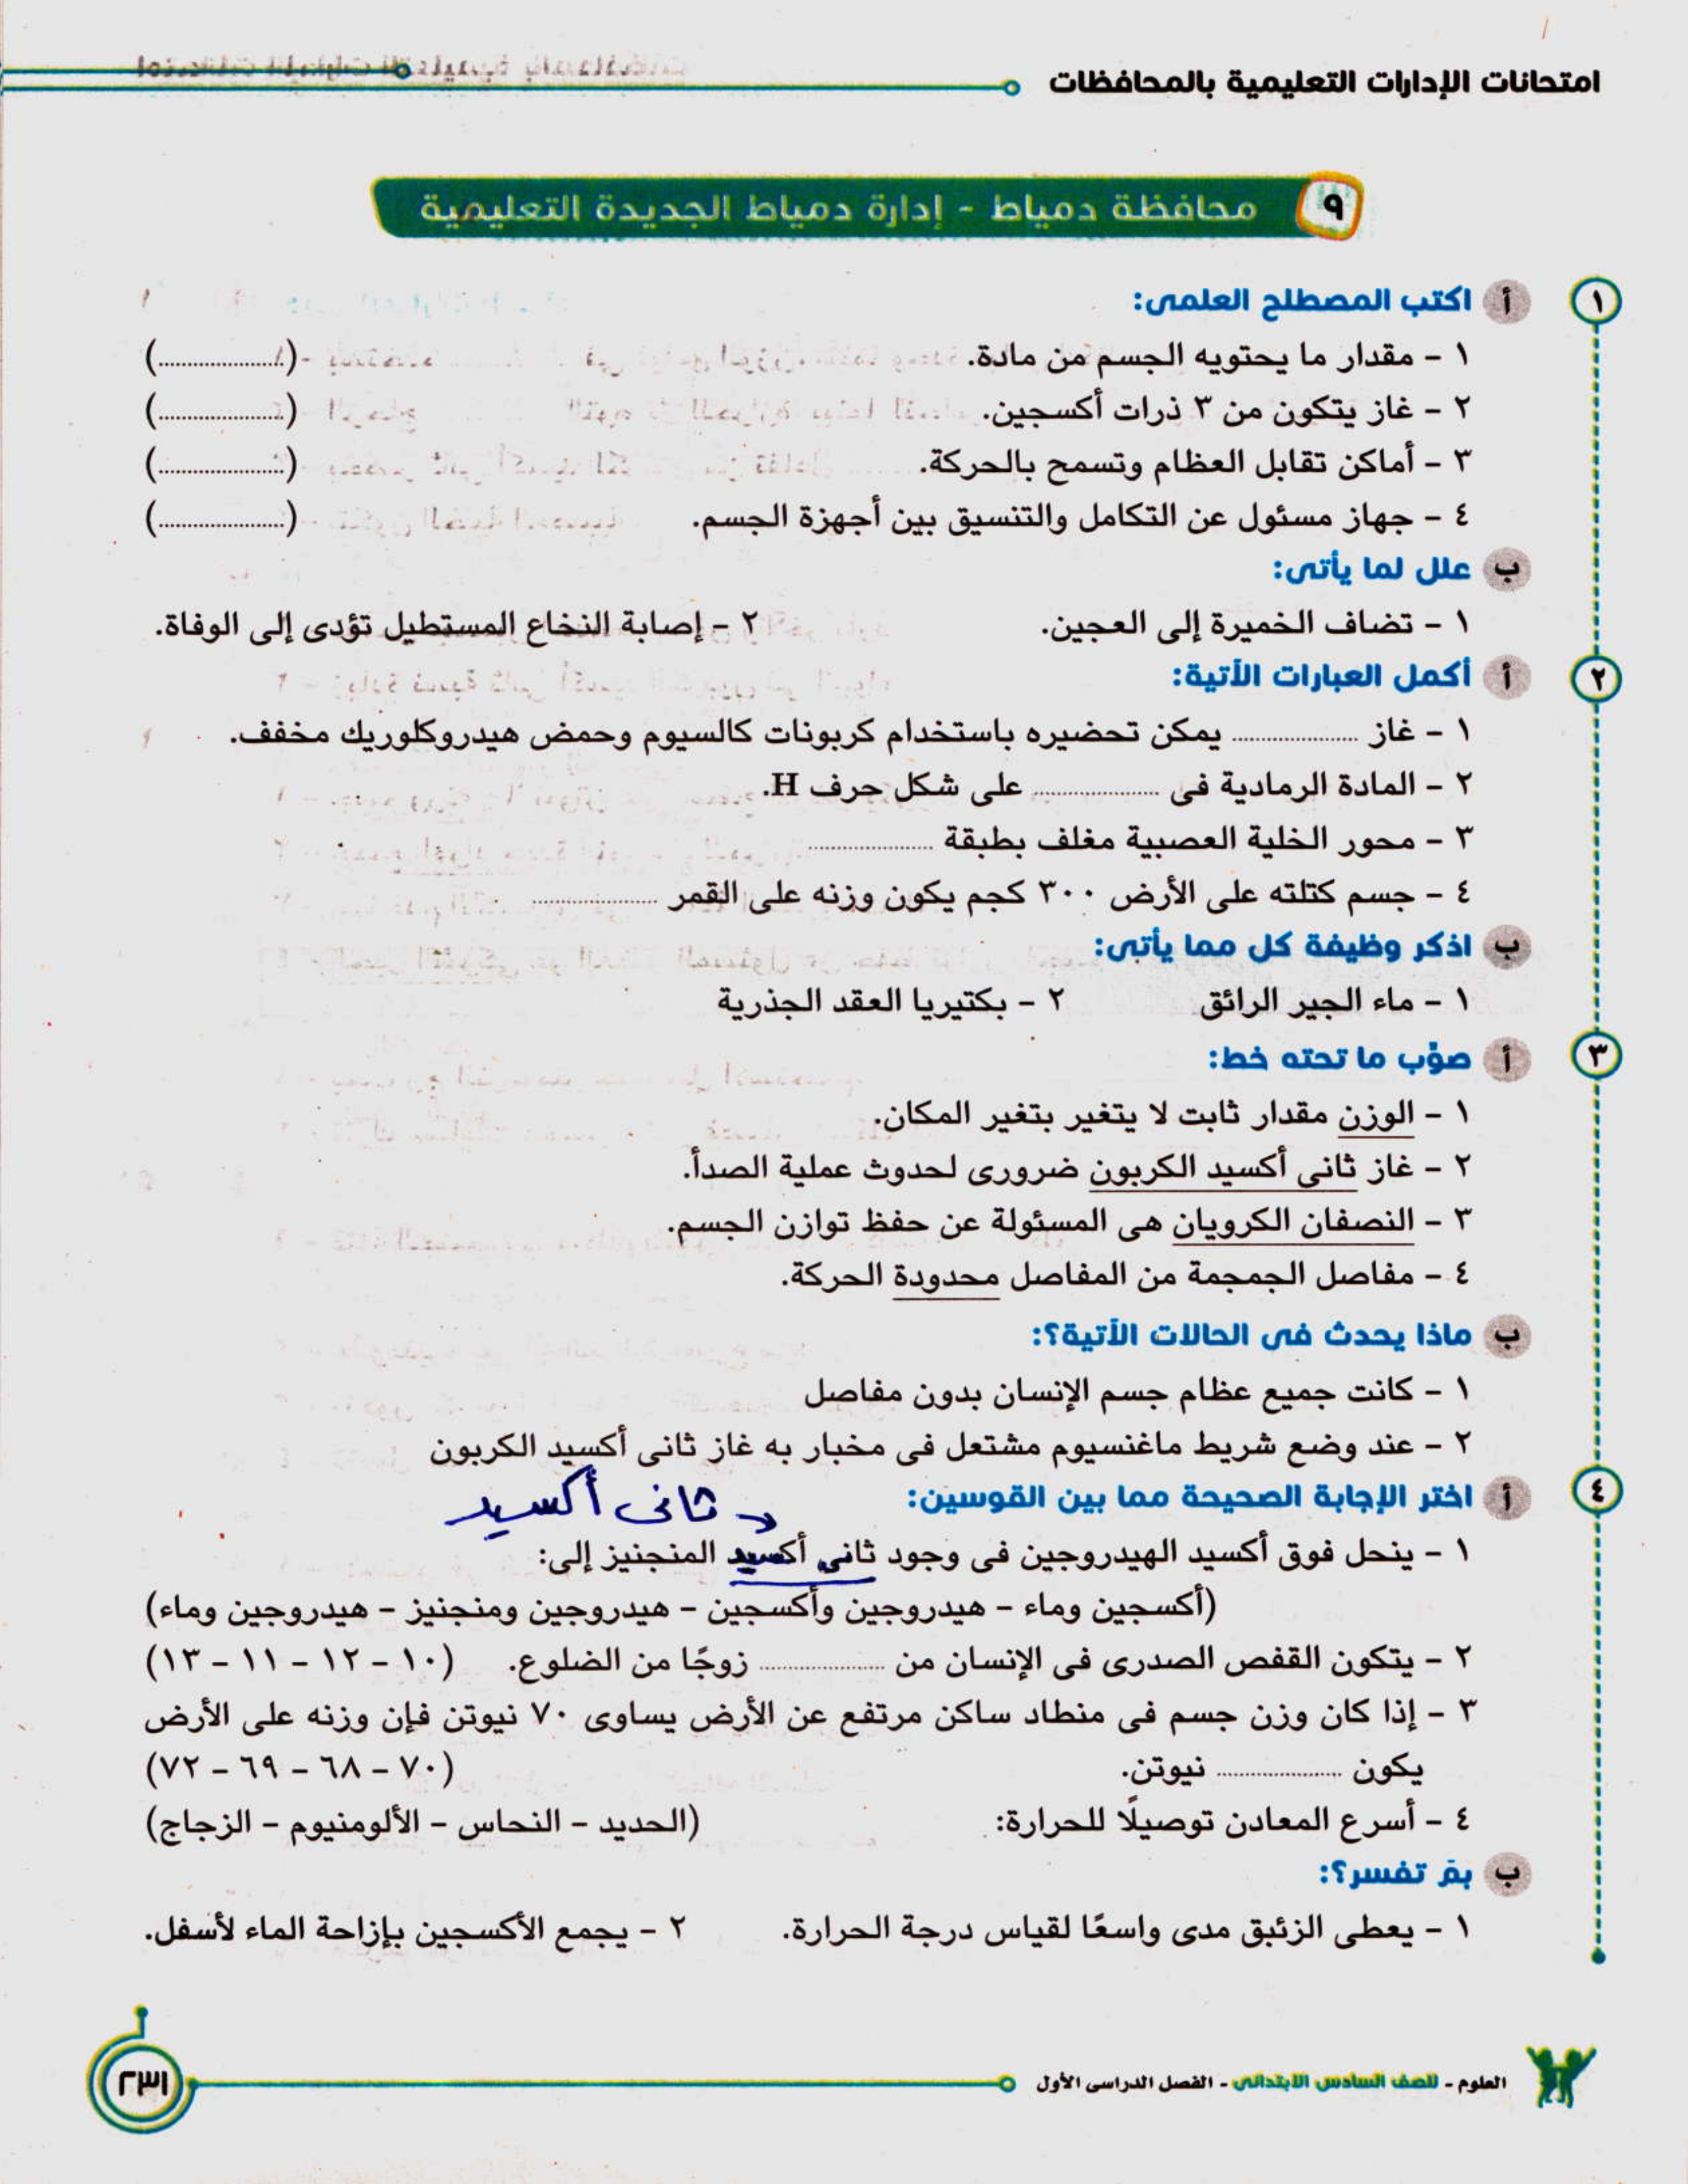 امتحانات الإدارات التعليمية بالمحافظات
٩ محافظة دمياط - إدارة دمياط الجديدة التعليمية
١ أ اكتب المصطلح العلمى:
١ - مقدار ما يحتويه الجسم من مادة. (....................)
٢ - غاز يتكون من ٣ ذرات أكسجين. (....................)
٣ - أماكن تقابل العظام وتسمح بالحركة. (....................)
٤ - جهاز مسئول عن التكامل والتنسيق بين أجهزة الجسم. (....................)
ب علل لما يأتى:
١ - تضاف الخميرة إلى العجين. ٢ - إصابة النخاع المستطيل تؤدى إلى الوفاة.
٢ أ أكمل العبارات الآتية:
١ - غاز .................... يمكن تحضيره باستخدام كربونات كالسيوم وحمض هيدروكلوريك مخفف.
٢ - المادة الرمادية فى .................... على شكل حرف H.
٣ - محور الخلية العصبية مغلف بطبقة ....................
٤ - جسم كتلته على الأرض ٣٠٠ كجم يكون وزنه على القمر ....................
ب اذكر وظيفة كل مما يأتى:
١ - ماء الجير الرائق ٢ - بكتيريا العقد الجذرية
٣ أ صوِّب ما تحته خط:
١ - الوزن مقدار ثابت لا يتغير بتغير المكان.
٢ - غاز ثانى أكسيد الكربون ضرورى لحدوث عملية الصدأ.
٣ - النصفان الكرويان هى المسئولة عن حفظ توازن الجسم.
٤ - مفاصل الجمجمة من المفاصل محدودة الحركة.
ب ماذا يحدث فى الحالات الآتية؟:
١ - كانت جميع عظام جسم الإنسان بدون مفاصل
٢ - عند وضع شريط ماغنسيوم مشتعل فى مخبار به غاز ثانى أكسيد الكربون
٤ أ اختر الإجابة الصحيحة مما بين القوسين:
ثانى أكسيد
١ - ينحل فوق أكسيد الهيدروجين فى وجود ثانى أكسيد المنجنيز إلى:
(أكسجين وماء - هيدروجين وأكسجين - هيدروجين ومنجنيز - هيدروجين وماء)
٢ - يتكون القفص الصدرى فى الإنسان من .................... زوجًا من الضلوع. (١٠ - ١٢ - ١١ - ١٣)
٣ - إذا كان وزن جسم فى منطاد ساكن مرتفع عن الأرض يساوى ٧٠ نيوتن فإن وزنه على الأرض
يكون .................... نيوتن. (٧٠ - ٦٨ - ٦٩ - ٧٢)
٤ - أسرع المعادن توصيلًا للحرارة: (الحديد - النحاس - الألومنيوم - الزجاج)
ب بمَ تفسر؟:
١ - يعطى الزئبق مدى واسعًا لقياس درجة الحرارة. ٢ - يجمع الأكسجين بإزاحة الماء لأسفل.
العلوم - للصف السادس الابتدائى - الفصل الدراسى الأول
٢٣١